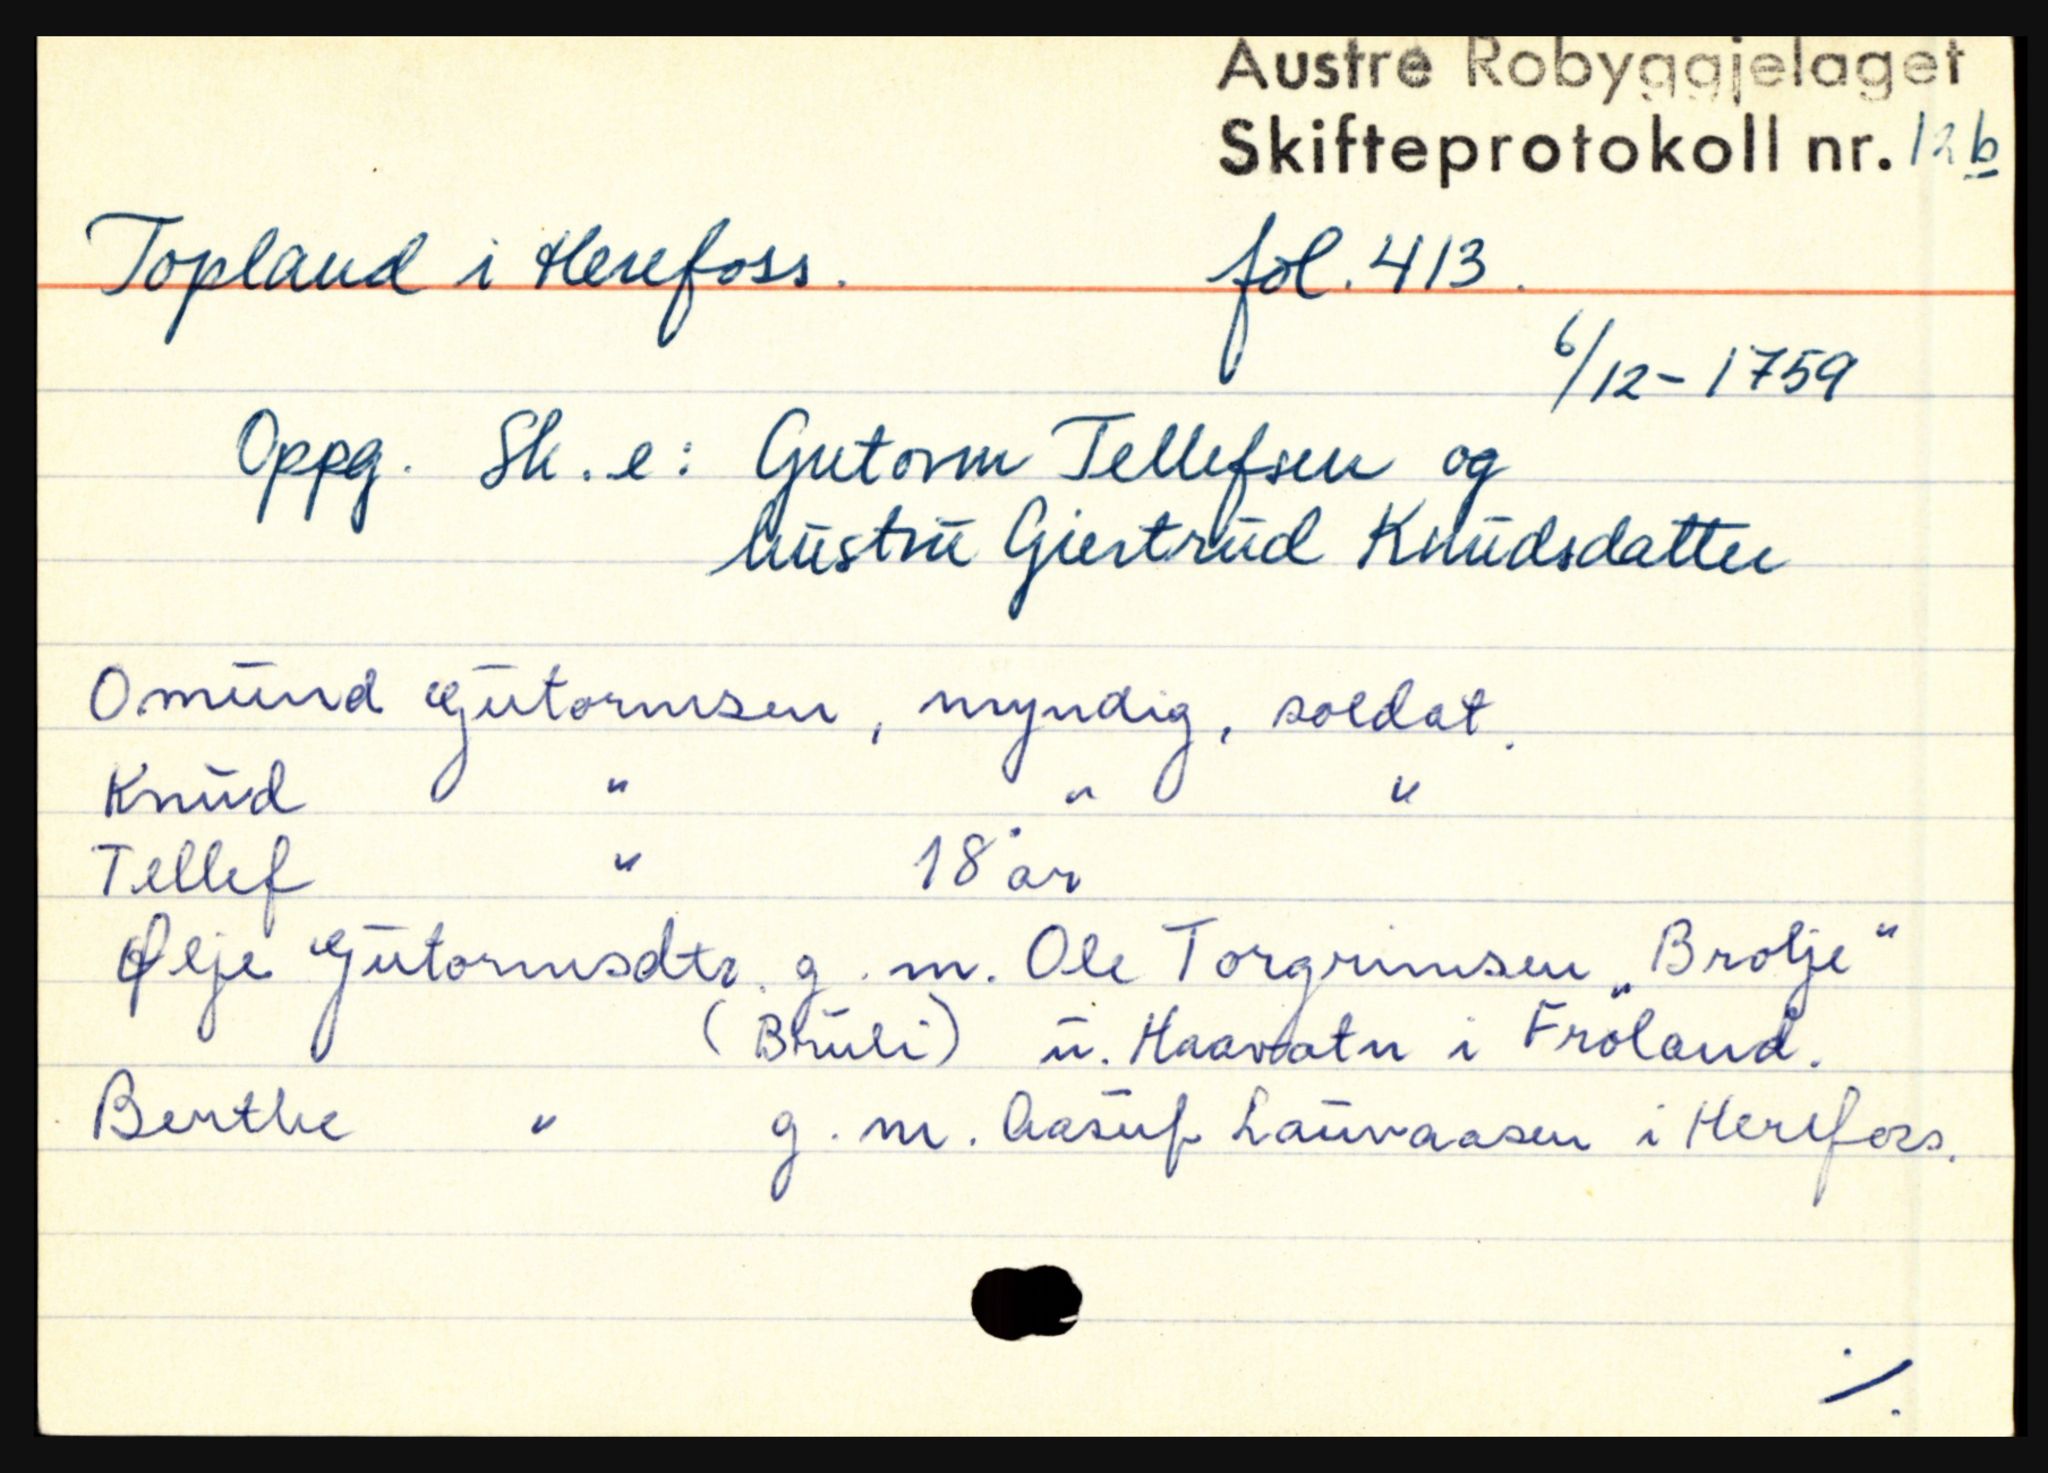 Austre Robyggjelaget
Skifteprotokoll nr. 12b
Topland i Herefoss. fol. 413.
6/12-1759
Oppg. Sk. e: Gutorm Tellefsen og
hustru Giertrud Knudsdatter
Omund Gutormsen, myndig, soldat.
Knud " " "
Tellef " 18 år
Ølje Gutormsdtr. g. m. Ole Torgrimsen „Brolje"
(Bruli) u. Haavatn i Froland.
Berthe " g. m. Aasuf Lauvaasen i Herefoss.
./.